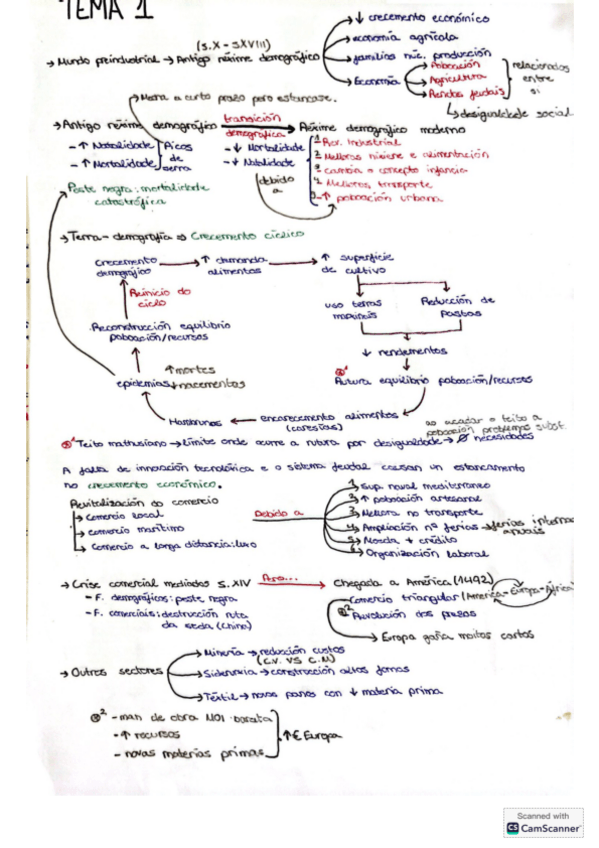 TEMA 1
(s.X - SXVIII)
→ Mundo preindustrial → Antigo réxime demográfico
↓ crecemento económico
economía agrícola
familias núc. producción
Economía
Poboación
Agricultura
Rendas feudais
relacionados entre si
↳ desigualdade social
→ Mellora a curto prazo pero estáncase.
→ Antigo réxime demográfico
transición demográfica
Réxime demográfico moderno
- ↑ Natalidade
- ↑ Mortalidade
Picos de serra
- ↓ Mortalidade
- ↓ Natalidade
debido a
1 Rev. Industrial
2 Melloras hixiene e alimentación
3 cambia o concepto infancia
4 Melloras transporte
5 - ↑ poboación urbana
Peste negra: mortalidade catastrófica
→ Terra - demografía ⇒ Crecemento cíclico
crecemento demográfico → ↑ demanda alimentos → ↑ superficie de cultivo
Reinicio do ciclo
uso terras marxinais
Reducción de pastos
Reconstrucción equilibrio poboación/recursos
↓ rendementos
↑ mortes
epidemias ↓ nacementos
Rutura equilibrio poboación/recursos
Hambrunas ← encarecemento alimentos (carestías)
ao acadar o teito a poboación problemas subst.
Teito malthusiano → límites onde ocurre a rutura por desigualdade → Ø necesidades
A falta de innovación tecnolóxica e o sistema feudal causan un estancamento
no crecemento económico.
Revitalización do comercio
↳ Comercio local
↳ comercio marítimo
↳ Comercio a longa distancia: luxo
Debido a
1 Sup. naval mediterráneo
2 ↑ poboación artesanal
3 Mellora no transporte
4 Ampliación nº ferias → ferias anuais
5 Moeda + crédito
6 Organización laboral
→ Crise comercial mediados S.XIV
Pero...
Chegada a América (1492)
- F. demográficos: peste negra
- F. comerciais: destrucción ruta da seda (China)
Comercio triangular (América - Europa - África)
2 Revolución dos prezos
→ Europa gaña moitos cartos
→ Outros sectores
Minería → reducción custos
(C.V. VS C.M)
Siderurxia → construcción altos fornos
Téxtil → novos panos con ↓ materia prima
2 - man de obra MOI barata
- ↑ recursos
- novas materias primas
↑ € Europa
Scanned with
CS CamScanner